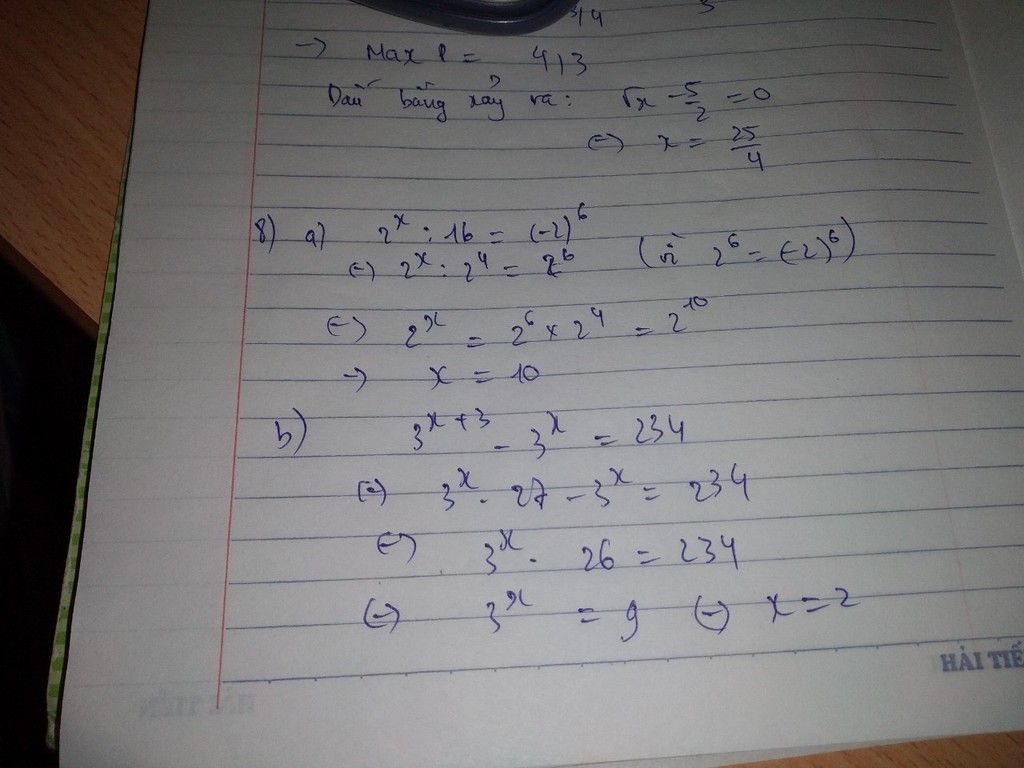 3/4
→ Max P = 4/3
Dấu bằng xảy ra: √x - 5/2 = 0
(=) x = 25/4
8) a) 2^x : 16 = (-2)^6
(=) 2^x : 2^4 = 2^6 (vì 2^6 = (-2)^6)
(=) 2^x = 2^6 × 2^4 = 2^10
→ x = 10
b) 3^(x+3) - 3^x = 234
(=) 3^x . 27 - 3^x = 234
(=) 3^x . 26 = 234
(=) 3^x = 9 (=) x = 2
HẢI TIẾ